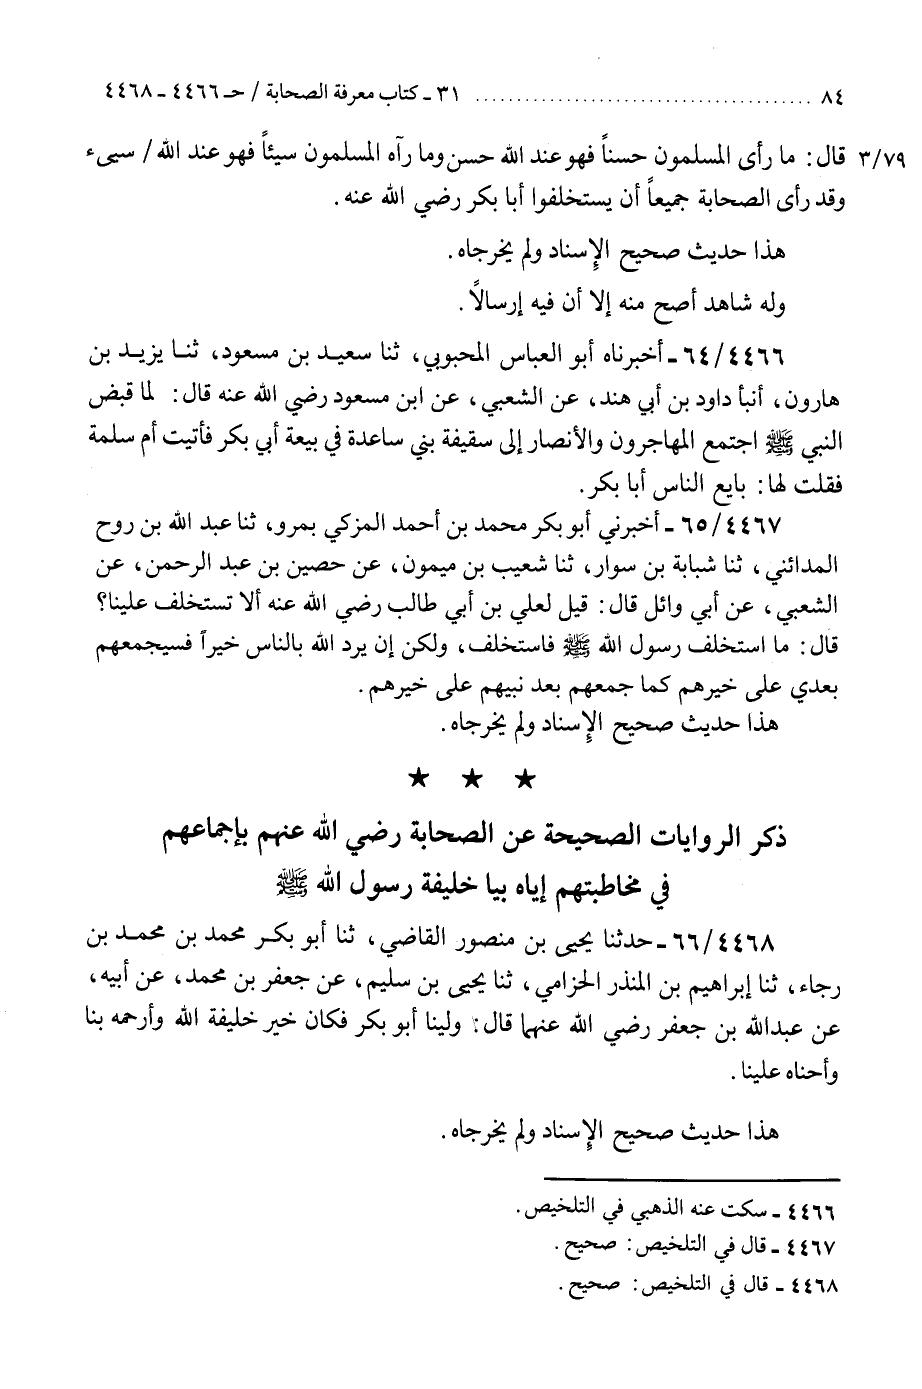 ٨٤ ........................................ ٣١ ـ كتاب معرفة الصحابة / حـ ٤٤٦٦ ـ ٤٤٦٨
٣/٧٩ قال: ما رأى المسلمون حسناً فهو عند الله حسن وما رآه المسلمون سيئاً فهو عند الله / سيىء
وقد رأى الصحابة جميعاً أن يستخلفوا أبا بكر رضي الله عنه.
هذا حديث صحيح الإسناد ولم يخرجاه.
وله شاهد أصح منه إلا أن فيه إرسالاً.
٦٤/٤٤٦٦ ـ أخبرناه أبو العباس المحبوبي، ثنا سعيد بن مسعود، ثنا يزيد بن
هارون، أنبأ داود بن أبي هند، عن الشعبي، عن ابن مسعود رضي الله عنه قال: لما قبض
النبي ﷺ اجتمع المهاجرون والأنصار إلى سقيفة بني ساعدة في بيعة أبي بكر فأتيت أم سلمة
فقلت لها: بايع الناس أبا بكر.
٦٥/٤٤٦٧ ـ أخبرني أبو بكر محمد بن أحمد المزكي بمرو، ثنا عبد الله بن روح
المدائني، ثنا شبابة بن سوار، ثنا شعيب بن ميمون، عن حصين بن عبد الرحمن، عن
الشعبي، عن أبي وائل قال: قيل لعلي بن أبي طالب رضي الله عنه ألا تستخلف علينا؟
قال: ما استخلف رسول الله ﷺ فاستخلف، ولكن إن يرد الله بالناس خيراً فسيجمعهم
بعدي على خيرهم كما جمعهم بعد نبيهم على خيرهم.
هذا حديث صحيح الإسناد ولم يخرجاه.
★ ★ ★
ذكر الروايات الصحيحة عن الصحابة رضي الله عنهم بإجماعهم
في مخاطبتهم إياه بيا خليفة رسول الله ﷺ
٦٦/٤٤٦٨ ـ حدثنا يحيى بن منصور القاضي، ثنا أبو بكر محمد بن محمد بن
رجاء، ثنا إبراهيم بن المنذر الحزامي، ثنا يحيى بن سليم، عن جعفر بن محمد، عن أبيه،
عن عبدالله بن جعفر رضي الله عنهما قال: ولينا أبو بكر فكان خير خليفة الله وأرحمه بنا
وأحناه علينا.
هذا حديث صحيح الإسناد ولم يخرجاه.
٤٤٦٦ ـ سكت عنه الذهبي في التلخيص.
٤٤٦٧ ـ قال في التلخيص: صحيح.
٤٤٦٨ ـ قال في التلخيص: صحيح.